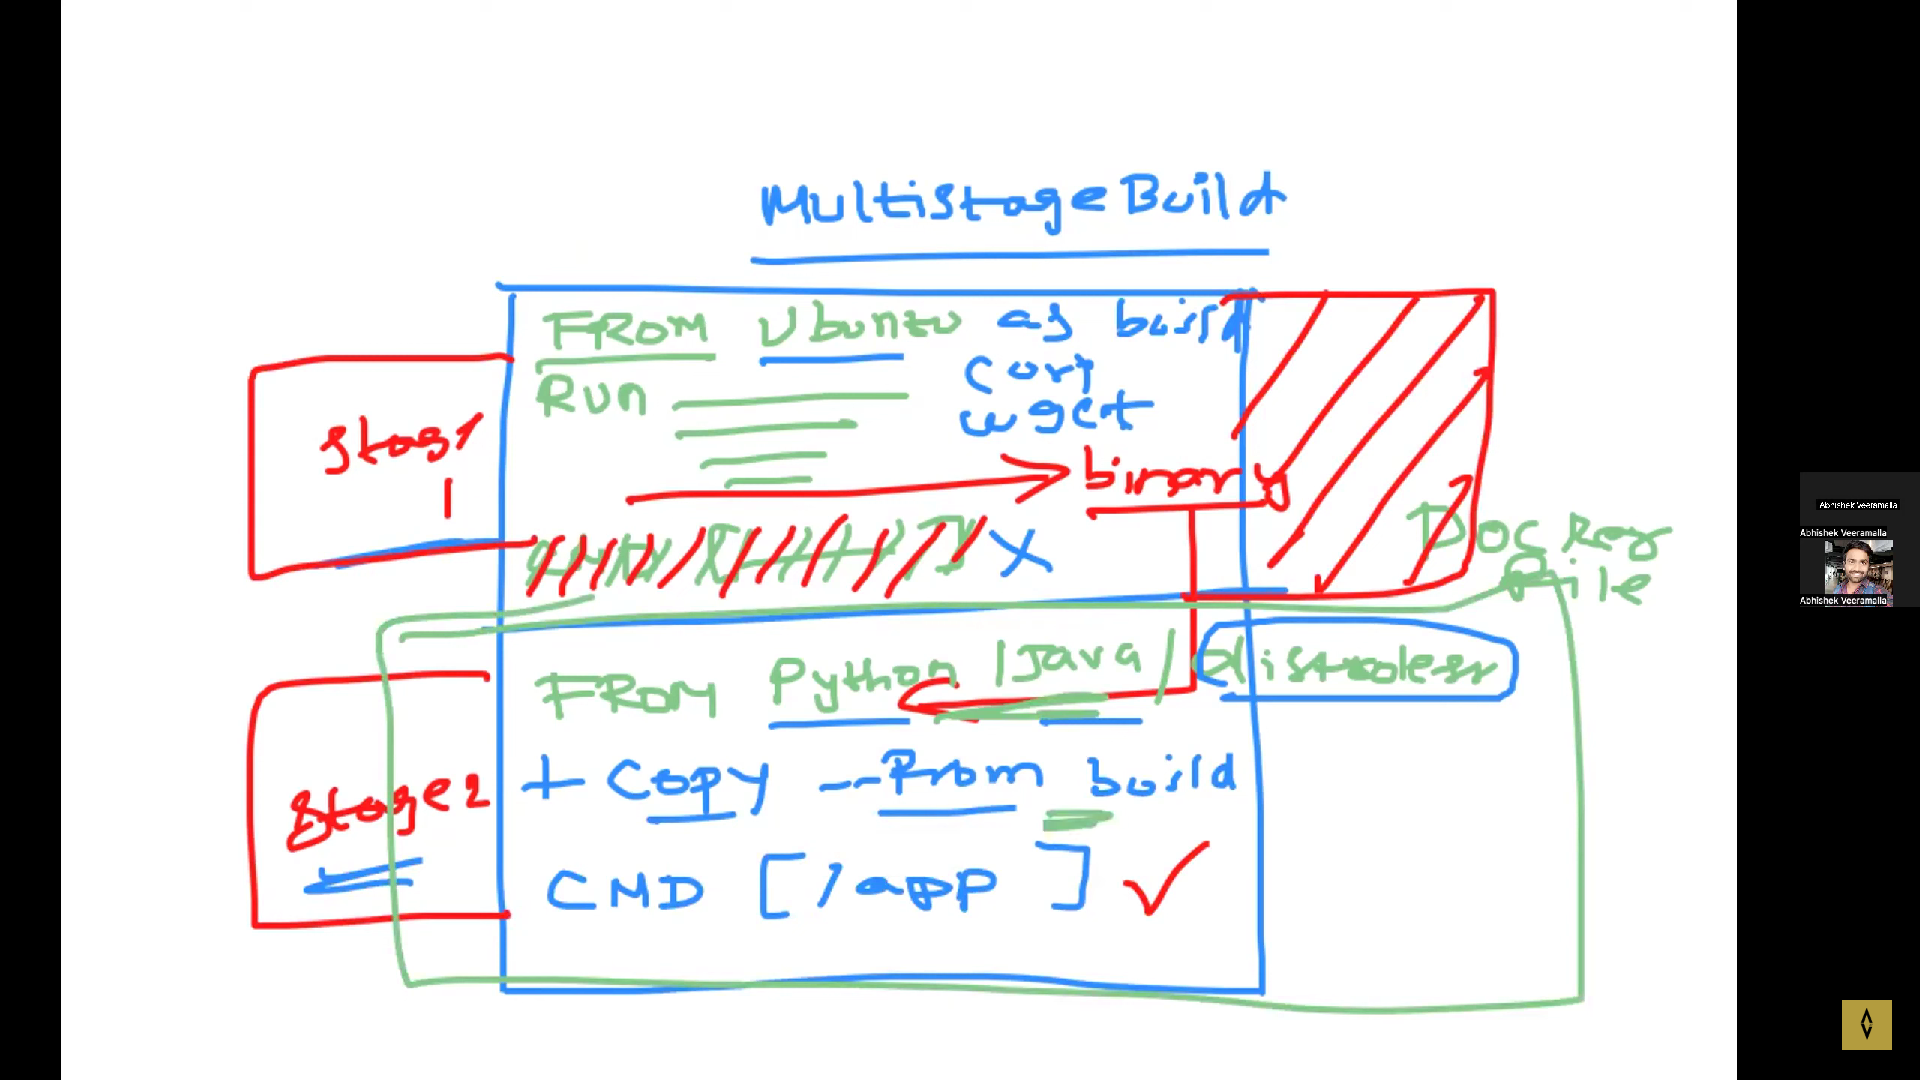 MultistageBuild
FROM Ubuntu as build
curl
wget
Run
Stage
1
binary
X
Docker
file
FROM Python / Java / distroless
Stage 2
+ Copy --From build
CMD [ / app ]
Abhishek Veeramalla
Abhishek Veeramalla
Abhishek Veeramalla